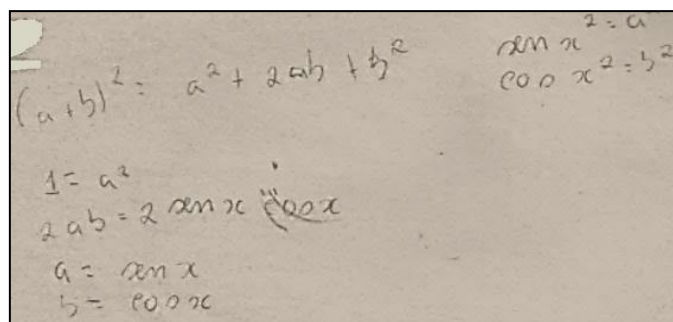 (a+b)² = a² + 2ab + b²
sen x² = a²
cos x² = b²
1 = a²
2ab = 2 sen x cos x
a = sen x
b = cos x